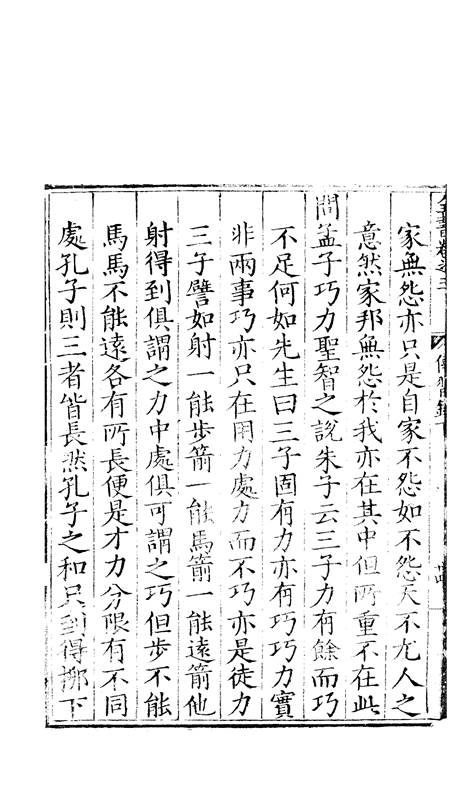 全書卷之三
傳習錄下
家無怨亦只是自家不怨如不怨天不尤人之
意然家邦無怨於我亦在其中但所重不在此
問孟子巧力聖智之說朱子云三子力有餘而巧
不足何如先生曰三子固有力亦有巧巧力實
非兩事巧亦只在用力處力而不巧亦是徒力
三子譬如射一能步箭一能馬箭一能遠箭他
射得到俱謂之力中處俱可謂之巧但步不能
馬馬不能遠各有所長便是才力分限有不同
處孔子則三者皆長然孔子之和只到得栁下